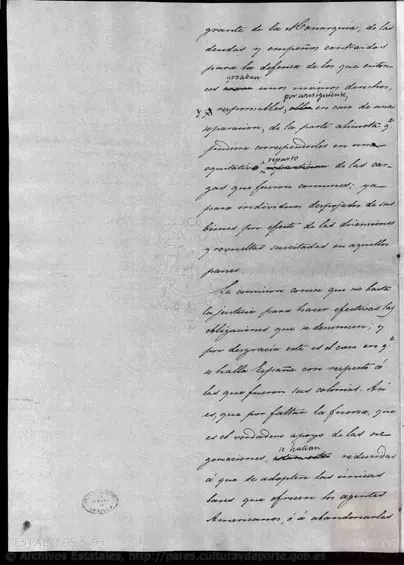 grante de la Monarquia, de las
deudas y empeños contraidos
para la defensa de los que enton-
gozaban
ces unos mismos derechos,
por consiguiente,
y responsables, en caso de una
separacion, de la parte alicuota qᵉ
pudiera corresponderles en una
reparto
equitativo de las car-
gas que fueron comunes; ya
para individuos despojados de sus
bienes por efecto de las disensiones
y revueltas suscitadas en aquellos
paises.
La comision conoce que no basta
la justicia para hacer efectivas las
obligaciones que se denomen; y
por desgracia este es el caso en qᵉ
se halla España con respecto á
las que fueron sus colonias. Asi
es, que por faltar la fuerza, que
es el verdadero apoyo de las ne-
se hallan
gociaciones, reducidas
á que se adopten las únicas
bases que ofrecen los agentes
Americanos, ó á abandonarlas
ESTADO
© Archivos Estatales, http://pares.culturaydeporte.gob.es